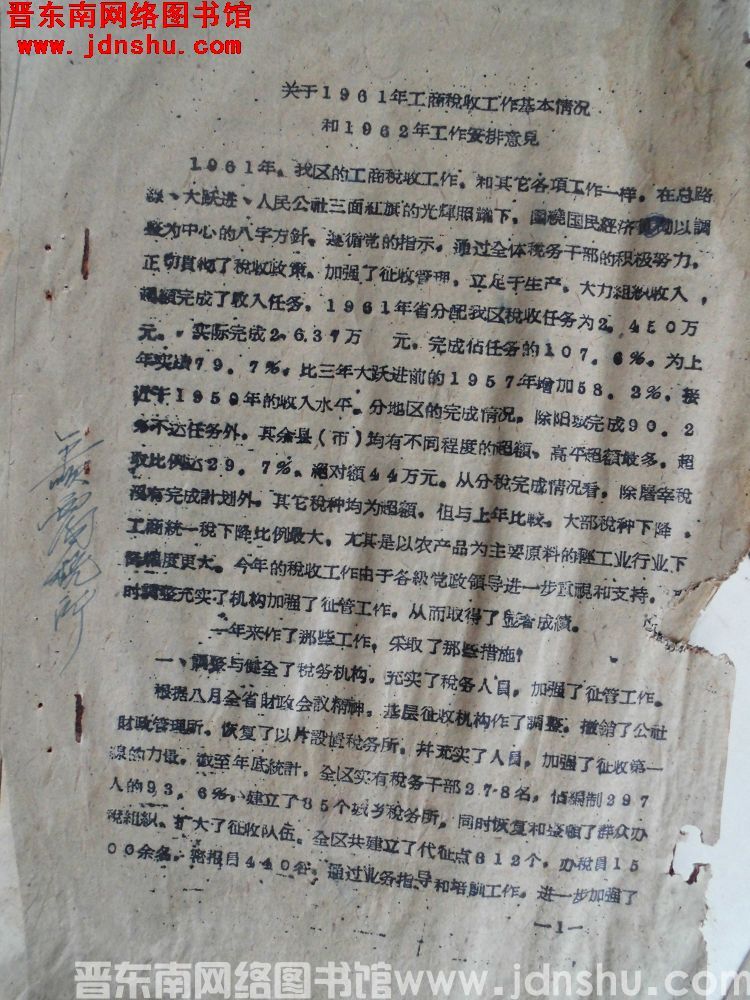 晋东南网络图书馆
www.jdnshu.com
关于1961年工商税收工作基本情况
和1962年工作安排意見
1961年，我区的工商税收工作，和其它各項工作一样，在总路
綫、大跃进、人民公社三面紅旗的光輝照耀下，圍繞国民經济以調
整为中心的八字方針，遵循党的指示，通过全体税务干部的积极努力，
正确貫彻了税收政策，加强了征收管理，立足于生产，大力組織收入，
超額完成了收入任务，1961年省分配我区税收任务为2，450万
元，实际完成2，637万 元，完成佔任务的107．6％，为上
年实績79．7％，比三年大跃进前的1957年增加58．2％，接
近于1959年的收入水平。分地区的完成情况，除阳城完成90．2
％不达任务外，其余县（市）均有不同程度的超額，高平超額最多，超
收比例达29．7％，絕对額44万元。从分税完成情况看，除屠宰税
沒有完成計划外，其它税种均为超額，但与上年比較，大部税种下降，
工商統一税下降比例最大，尤其是以农产品为主要原料的輕工业行业下
降幅度更大。今年的税收工作由于各級党政領导进一步重視和支持，
时調整充实了机构加强了征管工作，从而取得了显著成績。
一年来作了那些工作，采取了那些措施？
一、調整与健全了税务机构，充实了税务人員，加强了征管工作。
根据八月全省財政会議精神，基层征收机构作了調整，撤銷了公社
財政管理所，恢复了以片設置税务所，并充实了人員，加强了征收第一
綫的力量，截至年底統計，全区实有税务干部278名，佔編制297
人的93．6％，建立了85个城乡税务所，同时恢复和整頓了群众办
税組織，扩大了征收队伍。全区共建立了代征点612个，办税員15
00余名，密报員440名，通过业务指导和培訓工作，进一步加强了
—1—
税所
晋东南网络图书馆www.jdnshu.com